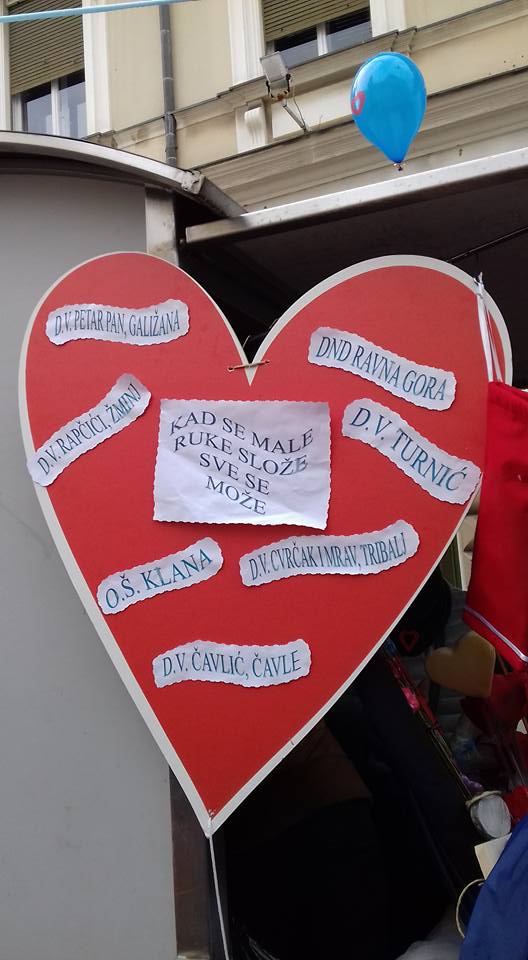 D.V. PETAR PAN, GALIŽANA
DND RAVNA GORA
D.V. RAPČIĆI, ŽMINJ
D.V. TURNIĆ
KAD SE MALE
RUKE SLOŽE
SVE SE
MOŽE
O.Š. KLANA
D.V. CVRČAK I MRAV, TRIBALJ
D.V. ČAVLIĆ, ČAVLE